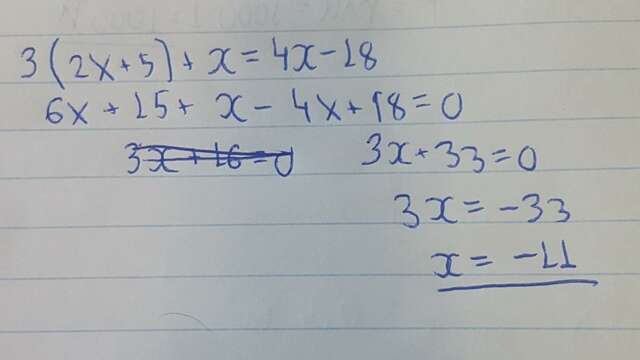 3(2x+5)+x=4x-18
6x+15+x-4x+18=0
3x+16=0 3x+33=0
3x=-33
x=-11